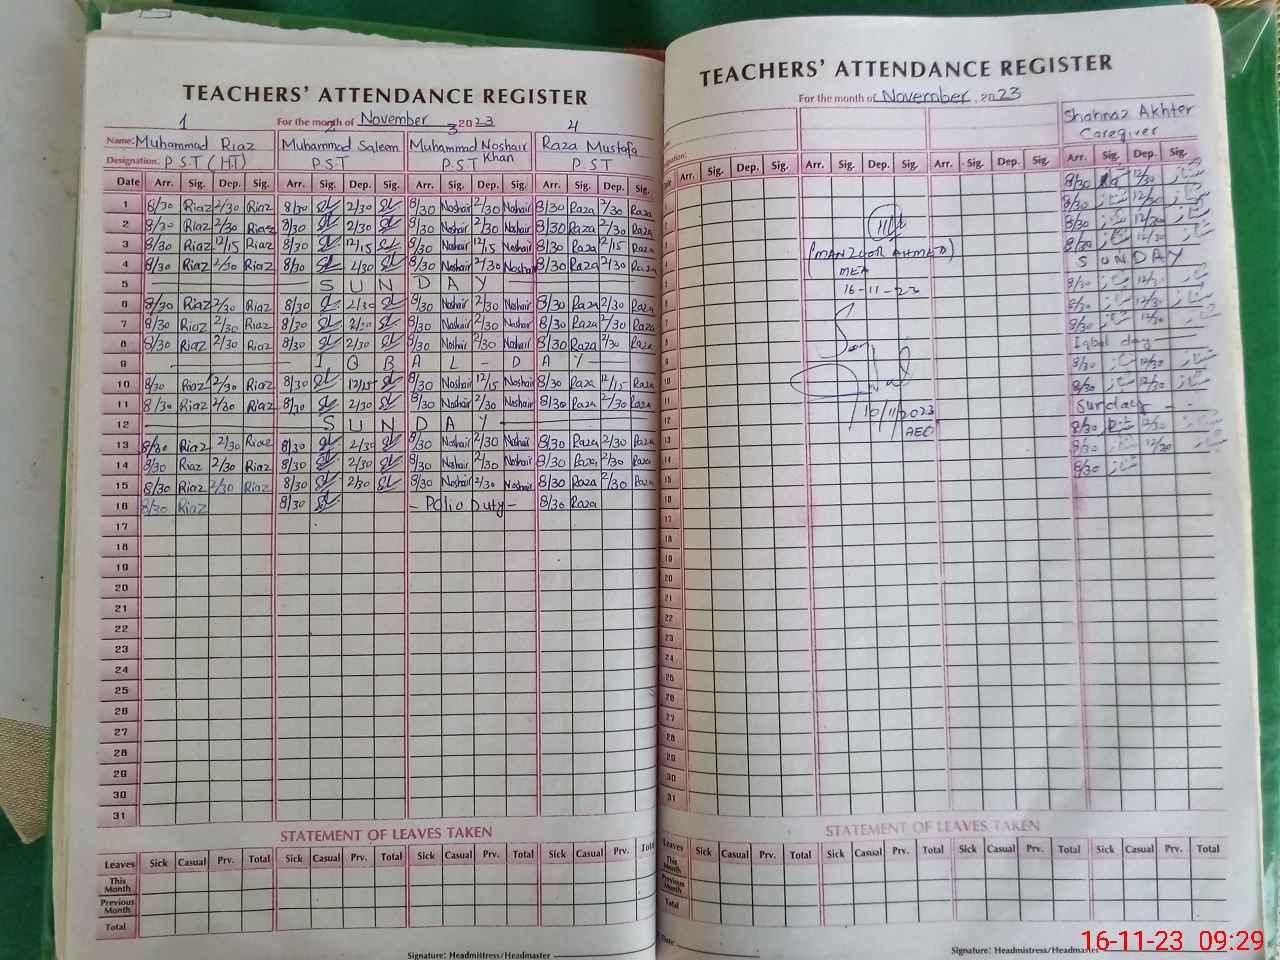 TEACHERS' ATTENDANCE REGISTER
1 2 3 4
For the month of November 2023
Name: Muhammad Riaz Muhammad Saleem Muhammad Noshair Khan Raza Mustafa
Designation: P S T (HT) P.S.T P.S.T P S T
Date Arr. Sig. Dep. Sig. Arr. Sig. Dep. Sig. Arr. Sig. Dep. Sig. Arr. Sig. Dep. Sig.
1 8/30 Riaz 2/30 Riaz 8/30 2/30 8/30 Noshair 2/30 Noshair 8/30 Raza 2/30 Raza
2 8/30 Riaz 2/30 Riaz 8/30 2/30 8/30 Noshair 2/30 Noshair 8/30 Raza 2/30 Raza
3 8/30 Riaz 12/15 Riaz 8/30 12/15 8/30 Noshair 12/15 Noshair 8/30 Raza 12/15 Raza
4 8/30 Riaz 2/30 Riaz 8/30 2/30 8/30 Noshair 2/30 Noshair 8/30 Raza 2/30 Raza
5 S U N D A Y
6 8/30 Riaz 2/30 Riaz 8/30 2/30 8/30 Noshair 2/30 Noshair 8/30 Raza 2/30 Raza
7 8/30 Riaz 2/30 Riaz 8/30 2/30 8/30 Noshair 2/30 Noshair 8/30 Raza 2/30 Raza
8 8/30 Riaz 2/30 Riaz 8/30 2/30 8/30 Noshair 2/30 Noshair 8/30 Raza 2/30 Raza
9 I Q B A L - D A Y
10 8/30 Riaz 2/30 Riaz 8/30 12/15 8/30 Noshair 12/15 Noshair 8/30 Raza 12/15 Raza
11 8/30 Riaz 2/30 Riaz 8/30 2/30 8/30 Noshair 2/30 Noshair 8/30 Raza 2/30 Raza
12 S U N D A Y
13 8/30 Riaz 2/30 Riaz 8/30 2/30 8/30 Noshair 2/30 Noshair 8/30 Raza 2/30 Raza
14 8/30 Riaz 2/30 Riaz 8/30 2/30 8/30 Noshair 2/30 Noshair 8/30 Raza 2/30 Raza
15 8/30 Riaz 2/30 Riaz 8/30 2/30 8/30 Noshair 2/30 Noshair 8/30 Raza 2/30 Raza
16 8/30 Riaz 8/30 - Polio Duty - 8/30 Raza
17
18
19
20
21
22
23
24
25
26
27
28
29
30
31
STATEMENT OF LEAVES TAKEN
Leaves Sick Casual Prv. Total Sick Casual Prv. Total Sick Casual Prv. Total Sick Casual Prv. Total
This Month
Previous Month
Total
Signature: Headmistress/Headmaster
TEACHERS' ATTENDANCE REGISTER
For the month of November, 2023
Shahnaz Akhter
Caregiver
Arr. Sig. Dep. Sig. Arr. Sig. Dep. Sig. Arr. Sig. Dep. Sig. Arr. Sig. Dep. Sig.
8/30 12/30
8/30 شناز 12/30 شناز
8/30 شناز 12/30 شناز
8/30 شناز 12/30 شناز
S U N D A Y
8/30 شناز 12/30 شناز
8/30 شناز 12/30 شناز
8/30 شناز 12/30 شناز
Iqbal day
8/30 شناز 12/30 شناز
8/30 شناز 12/30 شناز
Sunday
8/30 شناز 12/30 شناز
8/30 شناز 12/30 شناز
8/30 شناز
(MANZOOR AHMED)
MEA
16-11-23
10/11/2023
AEO
STATEMENT OF LEAVES TAKEN
Leaves Sick Casual Prv. Total Sick Casual Prv. Total Sick Casual Prv. Total Sick Casual Prv. Total
This Month
Previous Month
Total
Date
Signature: Headmistress/Headmaster
16-11-23 09:29